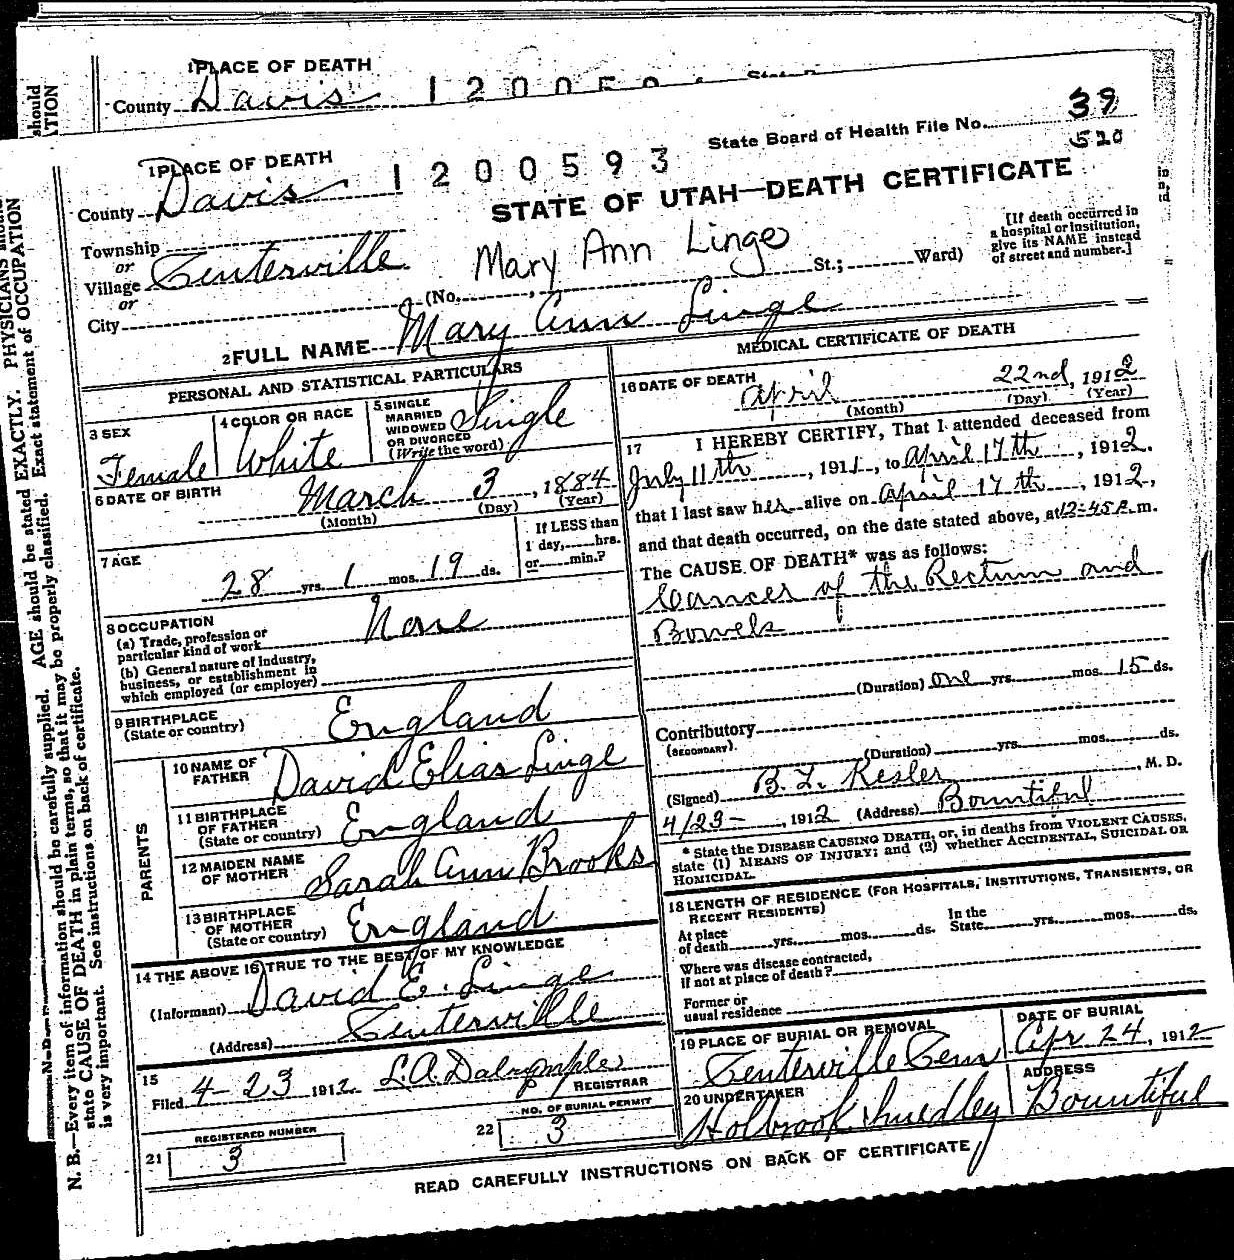 1 PLACE OF DEATH
County Davis
State Board of Health File No. 39
520
1 PLACE OF DEATH
1200593
County Davis
STATE OF UTAH—DEATH CERTIFICATE
Township
or
Village Centerville
or
City
Mary Ann Linge
(No. St.; Ward)
[If death occurred in
a hospital or institution,
give its NAME instead
of street and number.]
2 FULL NAME Mary Ann Linge
PERSONAL AND STATISTICAL PARTICULARS
3 SEX
Female
4 COLOR OR RACE
White
5 SINGLE
MARRIED
WIDOWED
OR DIVORCED
(Write the word)
Single
6 DATE OF BIRTH
March 3, 1884
(Month) (Day) (Year)
7 AGE
28 yrs. 1 mos. 19 ds.
If LESS than
1 day, hrs.
or min.?
8 OCCUPATION
(a) Trade, profession or
particular kind of work
None
(b) General nature of industry,
business, or establishment in
which employed (or employer)
9 BIRTHPLACE
(State or country)
England
PARENTS
10 NAME OF
FATHER
David Elias Linge
11 BIRTHPLACE
OF FATHER
(State or country)
England
12 MAIDEN NAME
OF MOTHER
Sarah Ann Brooks
13 BIRTHPLACE
OF MOTHER
(State or country)
England
14 THE ABOVE IS TRUE TO THE BEST OF MY KNOWLEDGE
(Informant) David E. Linge
(Address) Centerville
15
Filed 4-23 1912 L.A. Dalrymple
REGISTRAR
21
REGISTERED NUMBER
3
22
NO. OF BURIAL PERMIT
3
MEDICAL CERTIFICATE OF DEATH
16 DATE OF DEATH
April 22nd, 1912
(Month) (Day) (Year)
17 I HEREBY CERTIFY, That I attended deceased from
July 11th, 1911, to April 17th, 1912,
that I last saw her alive on April 17th, 1912,
and that death occurred, on the date stated above, at 12:45 P. m.
The CAUSE OF DEATH* was as follows:
Cancer of the Rectum and
Bowels
(Duration) one yrs. mos. 15 ds.
Contributory
(SECONDARY)
(Duration) yrs. mos. ds.
(Signed) B. L. Kesler, M. D.
4/23-, 1912 (Address) Bountiful
* State the DISEASE CAUSING DEATH, or, in deaths from VIOLENT CAUSES,
state (1) MEANS OF INJURY; and (2) whether ACCIDENTAL, SUICIDAL OR
HOMICIDAL.
18 LENGTH OF RESIDENCE (FOR HOSPITALS, INSTITUTIONS, TRANSIENTS, OR
RECENT RESIDENTS)
At place
of death yrs. mos. ds.
In the
State yrs. mos. ds.
Where was disease contracted,
if not at place of death?
Former or
usual residence
19 PLACE OF BURIAL OR REMOVAL
Centerville Cem
DATE OF BURIAL
Apr 24, 1912
20 UNDERTAKER
Holbrook Smedley
ADDRESS
Bountiful
READ CAREFULLY INSTRUCTIONS ON BACK OF CERTIFICATE
N. B.—Every item of information should be carefully supplied. AGE should be stated EXACTLY. PHYSICIANS should
state CAUSE OF DEATH in plain terms, so that it may be properly classified. Exact statement of OCCUPATION
is very important. See instructions on back of certificate.